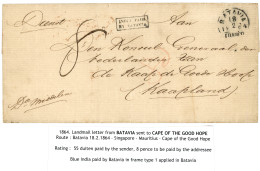 Dienst
Aan
INDIA PAID
BATAVIA
18
2
Franco
Den Konsul Generaal der
Nederlanden
de Kaap de Goede Hoop
(Kaapland)
1864, Landmail letter from BATAVIA sent to CAPE OF THE GOOD HOPE
Route : Batavia 18.2.1864 - Singapore - Mauritius - Cape of the Good Hope
Rating : 55 duiten paid by the sender, 8 pence to be paid by the addressee
Blue India paid by Batavia in frame type 1 applied in Batavia